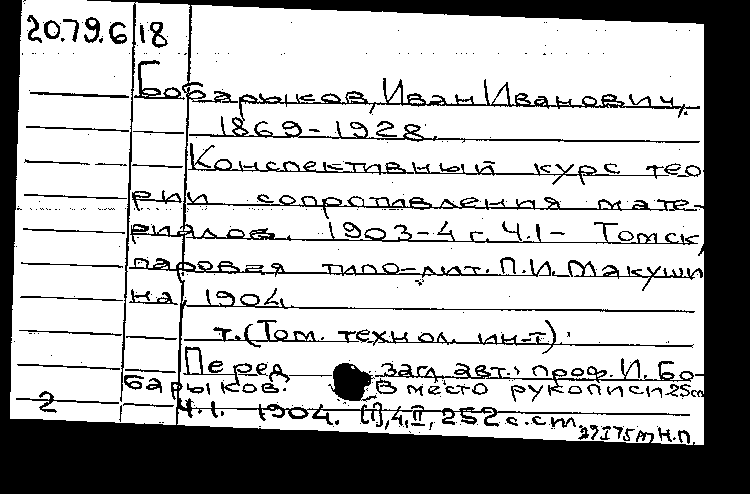 20.79.6 18
Бобарыков, Иван Иванович,
1869-1928.
Конспективный курс тео-
рии сопротивления мате-
риалов. 1903-4 г. Ч.1- Томск,
паровая типо-лит. П.И. Макуши
на, 1904.
т. (Том. технол. ин-т).
Перед загл. авт.: проф. И. Бо-
барыков. Вместо рукописи 25см
2 Ч.1. 1904. [1], 4, II, 252 с. ст.
Н.П.